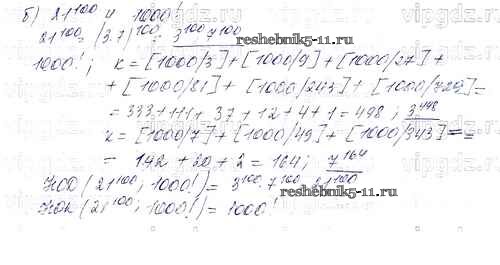 б) 21^100 и 1000!
21^100 = (3·7)^100 = 3^100 7^100
reshebnik5-11.ru
1000!; k = [1000/3] + [1000/9] + [1000/27] +
+ [1000/81] + [1000/243] + [1000/729] =
= 333 + 111 + 37 + 12 + 4 + 1 = 498; 3^498
k = [1000/7] + [1000/49] + [1000/343] = =
= 142 + 20 + 2 = 164; 7^164
НОД (21^100; 1000!) = 3^100·7^100 = 21^100
reshebnik5-11.ru
НОК (21^100; 1000!) = 1000!
vipgdz.ru